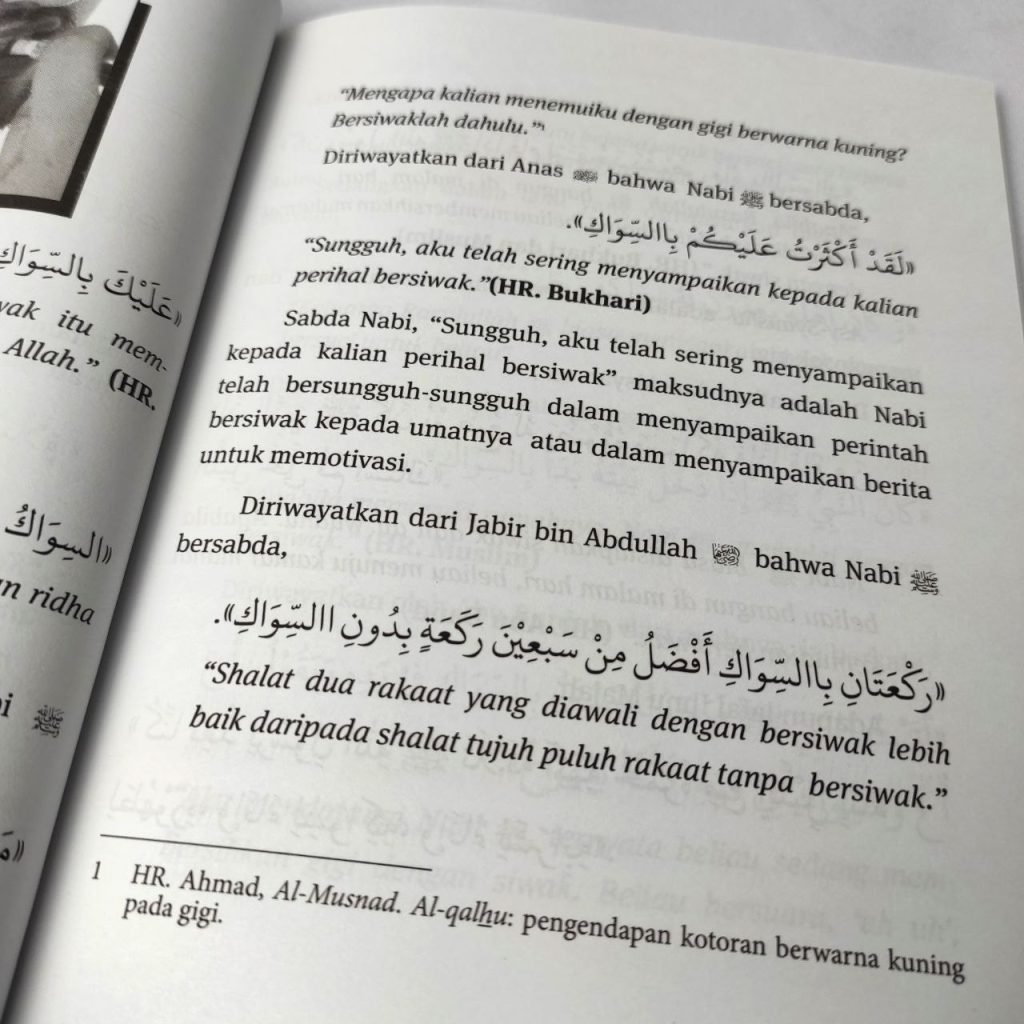 «عَلَيْكَ بِالسِّوَاكِ
wak itu mem-
Allah.” (HR.
«السِوَاكُ
n ridha
i ﷺ
“Mengapa kalian menemuiku dengan gigi berwarna kuning?
Bersiwaklah dahulu.”¹
Diriwayatkan dari Anas bahwa Nabi ﷺ bersabda,
«لَقَدْ أَكْثَرْتُ عَلَيْكُمْ بِاالسِّوَاكِ».
“Sungguh, aku telah sering menyampaikan kepada kalian
perihal bersiwak.”(HR. Bukhari)
Sabda Nabi, “Sungguh, aku telah sering menyampaikan
kepada kalian perihal bersiwak” maksudnya adalah Nabi
telah bersungguh-sungguh dalam menyampaikan perintah
bersiwak kepada umatnya atau dalam menyampaikan berita
untuk memotivasi.
Diriwayatkan dari Jabir bin Abdullah bahwa Nabi ﷺ
bersabda,
«رَكْعَتَانِ بِاالسِّوَاكِ أَفْضَلُ مِنْ سَبْعِيْنَ رَكَعَةٍ بِدُونِ االسِّوَاكِ».
“Shalat dua rakaat yang diawali dengan bersiwak lebih
baik daripada shalat tujuh puluh rakaat tanpa bersiwak.”
1 HR. Ahmad, Al-Musnad. Al-qalhu: pengendapan kotoran berwarna kuning
pada gigi.